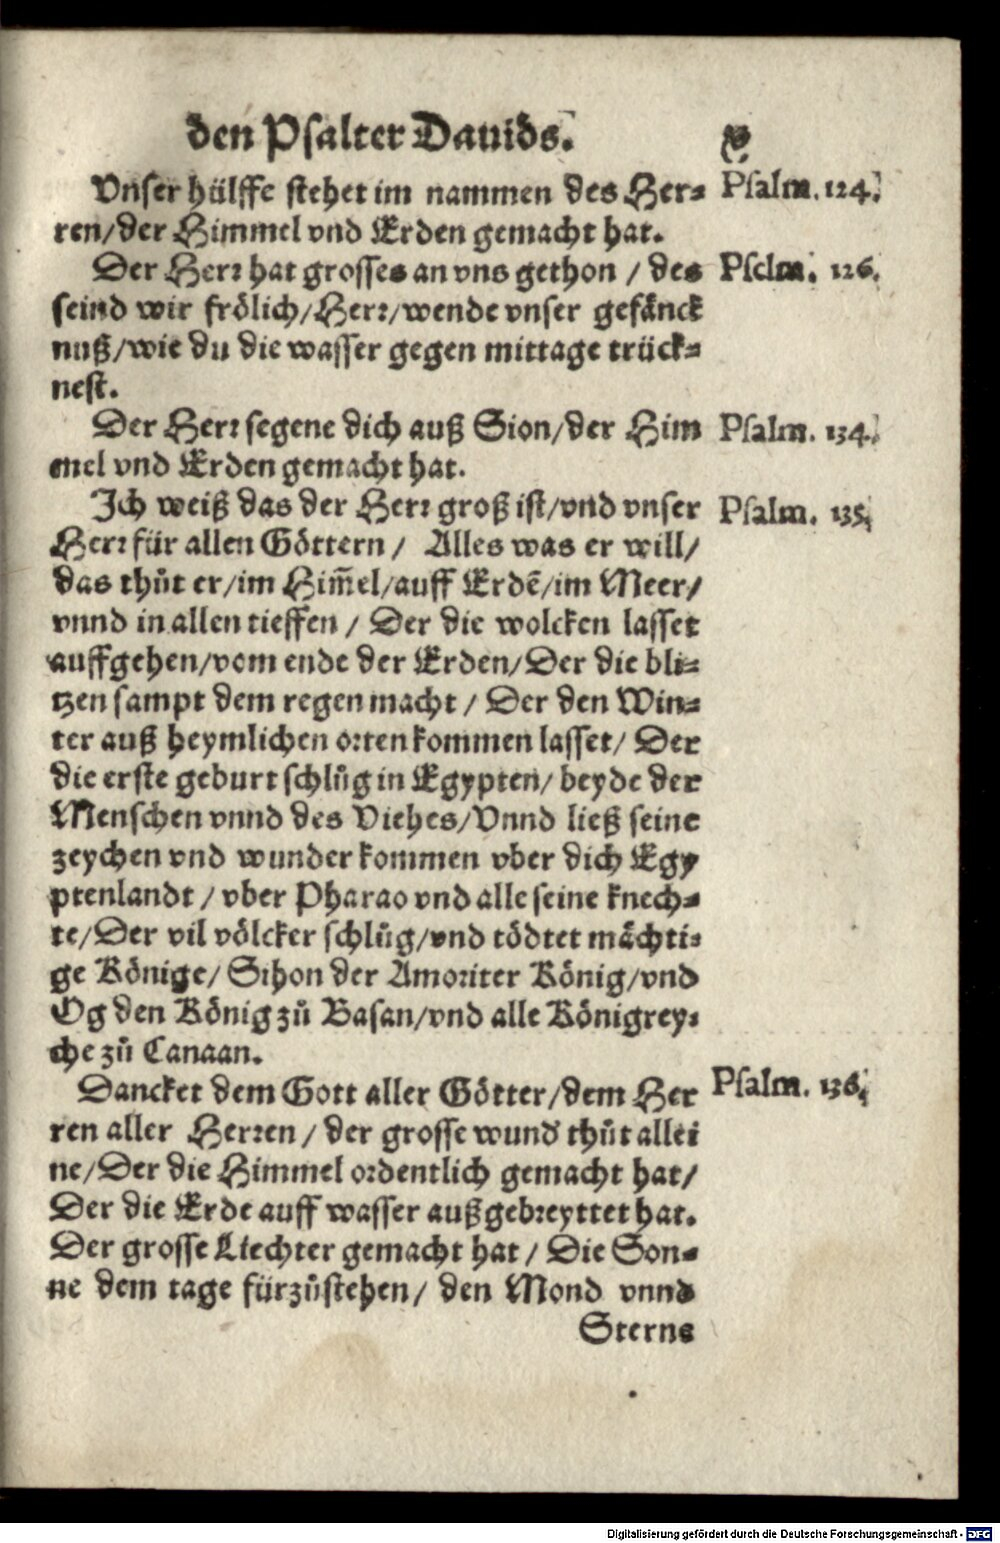 den Psalter Dauids.
Vnser hülffe stehet im nammen des Her- Psalm. 124.
ren/der Himmel vnd Erden gemacht hat.
Der Herr hat grosses an vns gethon / des Pselm. 126.
seind wir frölich/Herr/wende vnser gefänck
nuß/wie du die wasser gegen mittage trück-
nest.
Der Herr segene dich auß Sion/der Him Psalm. 134.
mel vnd Erden gemacht hat.
Ich weiß das der Herr groß ist/vnd vnser Psalm. 135.
Herr für allen Göttern / Alles was er will/
das thůt er/im Him̄el/auff Erdē/im Meer/
vnnd in allen tieffen / Der die wolcken lasset
auffgehen/vom ende der Erden/Der die bli-
tzen sampt dem regen macht / Der den Win-
ter auß heymlichen orten kommen lasset/ Der
die erste geburt schlůg in Egypten/ beyde der
Menschen vnnd des Viehes/Vnnd ließ seine
zeychen vnd wunder kommen vber dich Egy
ptenlandt / vber Pharao vnd alle seine knech-
te/Der vil völcker schlůg/vnd tödtet mächti-
ge Könige/ Sihon der Amoriter König/vnd
Og den König zů Basan/vnd alle Königrey-
che zů Canaan.
Dancket dem Gott aller Götter/dem Her Psalm. 136.
ren aller Herren / der grosse wund' thůt allei
ne/Der die Himmel ordentlich gemacht hat/
Der die Erde auff wasser außgebreyttet hat.
Der grosse Liechter gemacht hat / Die Son-
ne dem tage fürzůstehen/ den Mond vnnd
Sterns
Digitalisierung gefördert durch die Deutsche Forschungsgemeinschaft - DFG